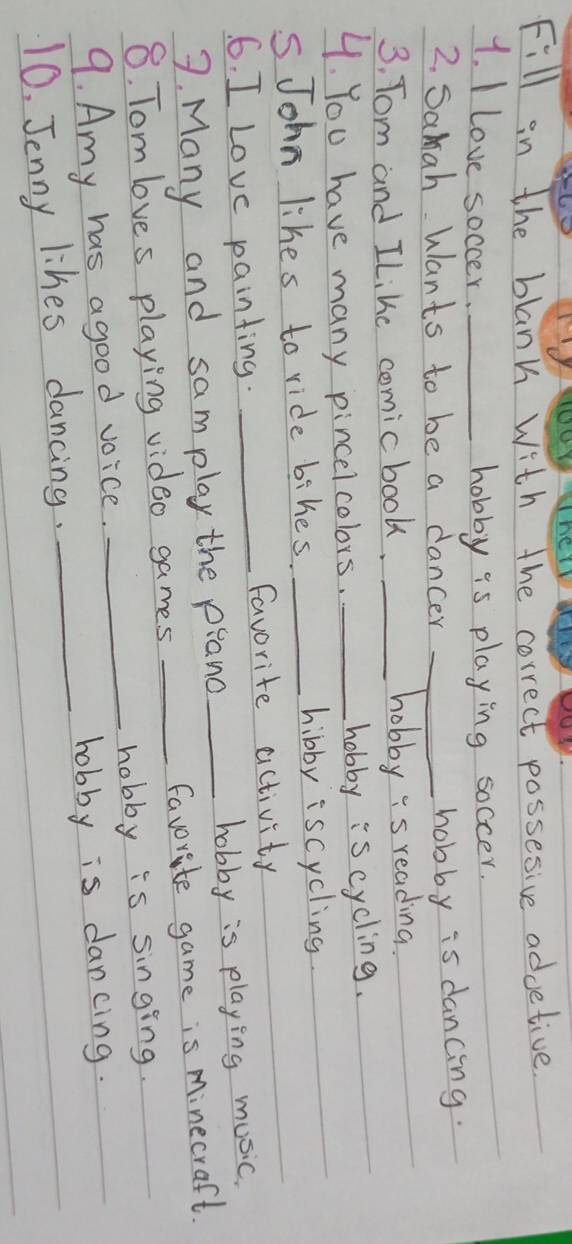 its my your their his our
Fill in the blank with the correct possesive adjetive.
1. I Love soccer. ______ hobby is playing soccer.
2. Sarah Wants to be a dancer ______ hobby is dancing.
3. Tom and I Like comic book. ______ hobby is reading.
4. You have many pincel colors. ______ hobby is cycling.
5 John likes to ride bikes. ______ hibby is cycling.
6. I Love painting. ______ favorite activity
7. Many and sam play the piano ______ hobby is playing music.
8. Tom loves playing video games ______ favorite game is Minecraft.
9. Amy has a good voice. ______ hobby is singing.
10. Jenny likes dancing. ______ hobby is dancing.